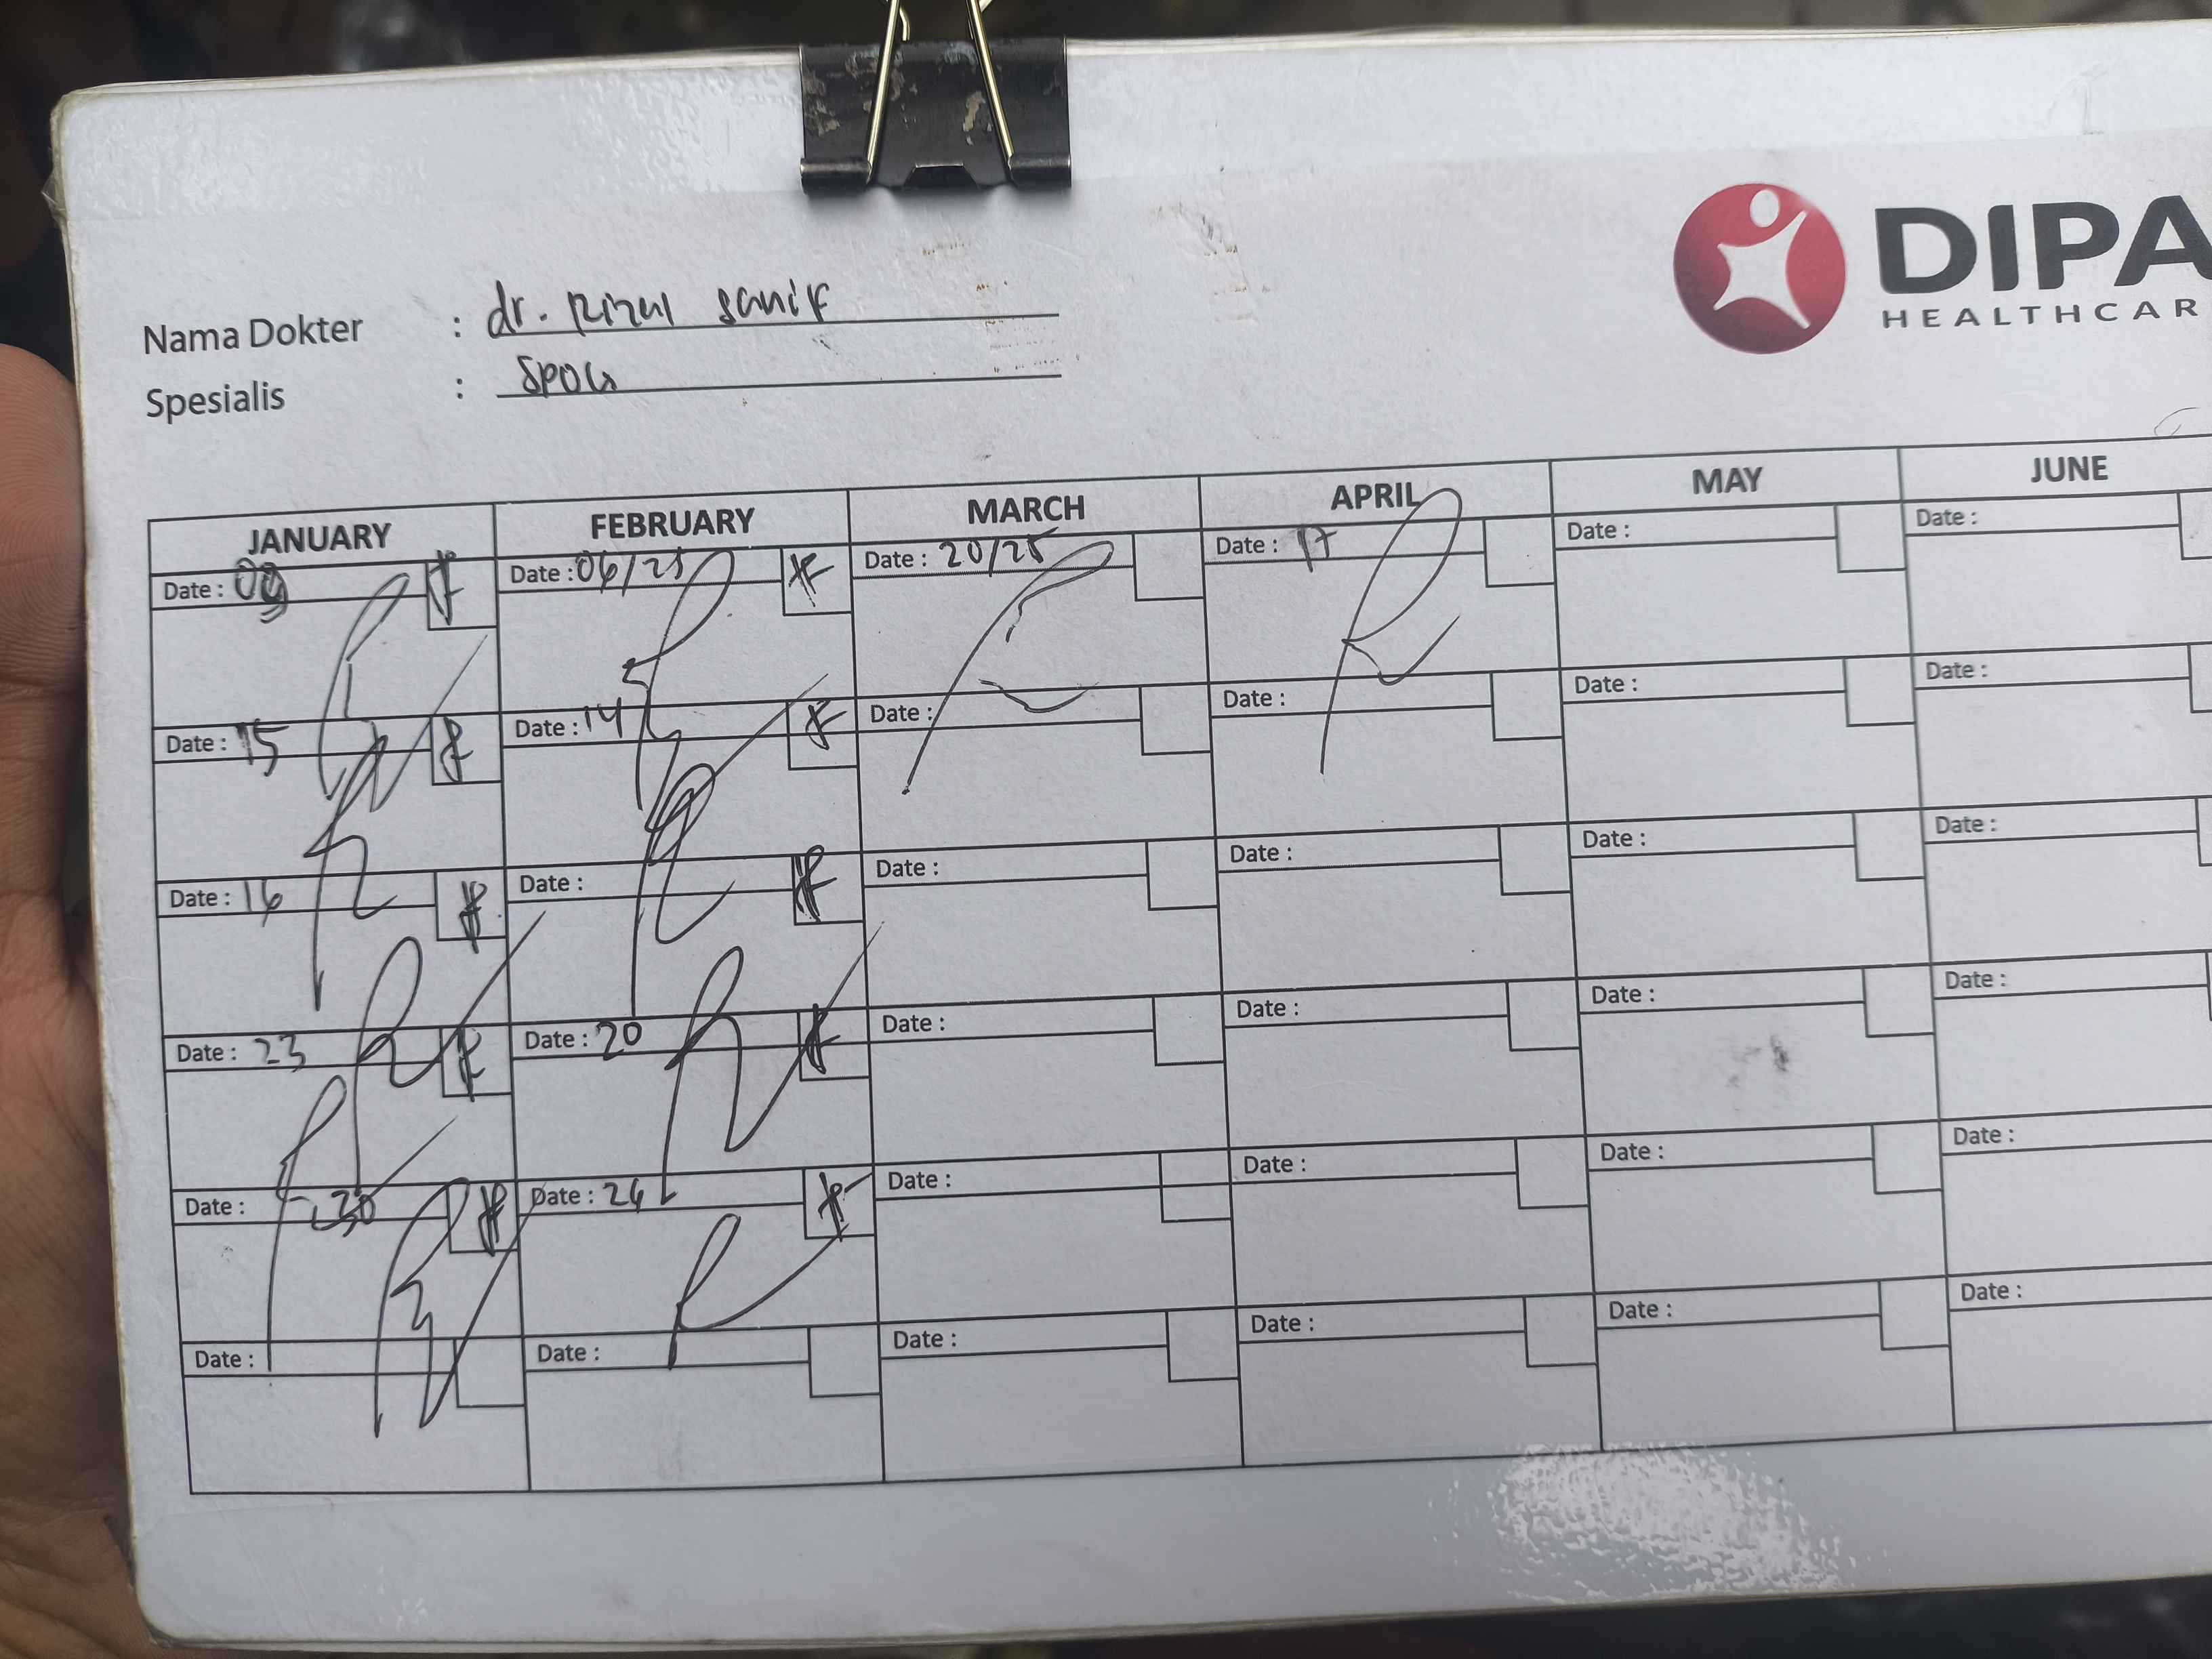 DIPA
HEALTHCAR
Nama Dokter : dr. Rizal Sanif
Spesialis : SPOG
JANUARY FEBRUARY MARCH APRIL MAY JUNE
Date : 09 Date : 06/25 Date : 20/25 Date : 17 Date : Date :
Date : 15 Date : 14 Date : Date : Date : Date :
Date : 16 Date : Date : Date : Date : Date :
Date : 23 Date : 20 Date : Date : Date : Date :
Date : 30 Date : 26 Date : Date : Date : Date :
Date : Date : Date : Date : Date : Date :